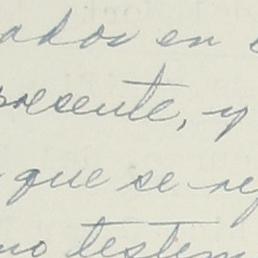 ados en
presente, y
que se re
no testem